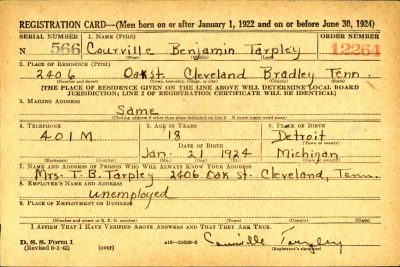 REGISTRATION CARD—(Men born on or after January 1, 1922 and on or before June 30, 1924)
SERIAL NUMBER 1. NAME (Print) ORDER NUMBER
N 566 Courville Benjamin Tarpley 12264
(First) (Middle) (Last)
2. PLACE OF RESIDENCE (Print)
2406 Oak st. Cleveland Bradley Tenn.
(Number and street) (Town, township, village, or city) (County) (State)
[THE PLACE OF RESIDENCE GIVEN ON THE LINE ABOVE WILL DETERMINE LOCAL BOARD
JURISDICTION; LINE 2 OF REGISTRATION CERTIFICATE WILL BE IDENTICAL]
3. MAILING ADDRESS
Same
[Mailing address if other than place indicated on line 2. If same insert word same]
4. TELEPHONE 5. AGE IN YEARS 6. PLACE OF BIRTH
401M. 18 Detroit
DATE OF BIRTH (Town or county)
Jan. 21 1924 Michigan
(Exchange) (Number) (Mo.) (Day) (Yr.) (State or country)
7. NAME AND ADDRESS OF PERSON WHO WILL ALWAYS KNOW YOUR ADDRESS
Mrs. T. B. Tarpley 2406 Oak st. Cleveland, Tenn.
8. EMPLOYER'S NAME AND ADDRESS
unemployed
9. PLACE OF EMPLOYMENT OR BUSINESS
(Number and street or R. F. D. number) (Town) (County) (State)
I AFFIRM THAT I HAVE VERIFIED ABOVE ANSWERS AND THAT THEY ARE TRUE.
D. S. S. Form 1
(Revised 6-9-42) (over) Courville Tarpley
(Registrant's signature)